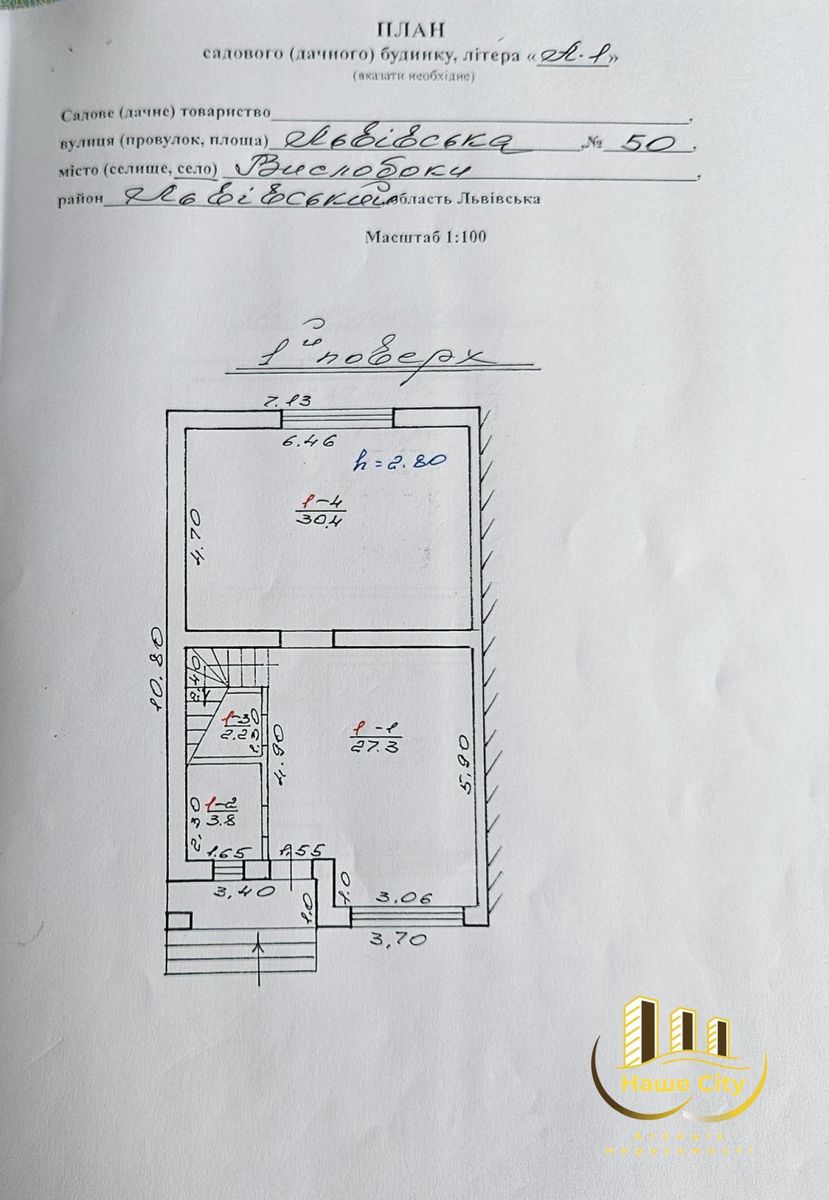 ПЛАН
садового (дачного) будинку, літера «А-1»
(вказати необхідне)
Садове (дачне) товариство
вулиця (провулок, площа) Львівська, № 50,
місто (селище, село) Вислобоки,
район Львівський область Львівська
Масштаб 1:100
1й поверх
7.13
6.46
h=2.80
1-4
30.4
4.70
10.80
2.40
1-3
2.2
1.30
4.90
1-1
27.3
5.90
1-2
3.8
2.30
1.65
1.55
3,40
1.0
1.0
3.06
3,70
Наше City
агенція
нерухомості